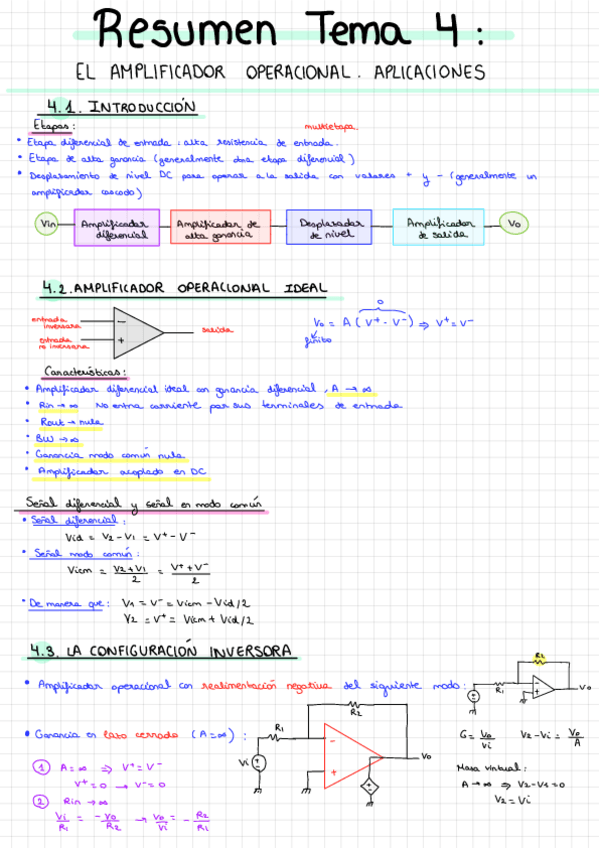 Resumen Tema 4:
EL AMPLIFICADOR OPERACIONAL. APLICACIONES
4.1. INTRODUCCIÓN
Etapas:
multietapa.
• Etapa diferencial de entrada: alta resistencia de entrada.
• Etapa de alta ganancia (generalmente otra etapa diferencial)
• Desplazamiento de nivel DC para operar a la salida con valores + y - (generalmente un
amplificador cascodo)
Vin
Amplificador
diferencial
Amplificador de
alta ganancia
Desplazador
de nivel
Amplificador
de salida
Vo
4.2. AMPLIFICADOR OPERACIONAL IDEAL
entrada
inversora
entrada
no inversora
-
+
salida
0
Vo = A (V⁺ - V⁻) ⇒ V⁺ = V⁻
finito
Características:
• Amplificador diferencial ideal con ganancia diferencial, A → ∞
• Rin → ∞ No entra corriente por sus terminales de entrada
• Rout → nula
• BW → ∞
• Ganancia modo común nula
• Amplificador acoplado en DC
Señal diferencial y señal en modo común
• Señal diferencial:
Vid = V2 - V1 = V⁺ - V⁻
• Señal modo común:
Vicm = V2 + V1 / 2 = V⁺ + V⁻ / 2
• De manera que: V1 = V⁻ = Vicm - Vid/2
V2 = V⁺ = Vicm + Vid/2
4.3. LA CONFIGURACIÓN INVERSORA
• Amplificador operacional con realimentación negativa del siguiente modo:
R2
R1
-
+
Vo
• Ganancia en lazo cerrado (A = ∞):
R1
R2
Vi
-
+
Vo
G = Vo / Vi V2 - Vi = Vo / A
Masa virtual:
A → ∞ ⇒ V2 - V1 = 0
V2 = Vi
1 A = ∞ ⇒ V⁺ = V⁻
V⁺ = 0 → V⁻ = 0
2 Rin → ∞
Vi / R1 = -Vo / R2 → Vo / Vi = - R2 / R1